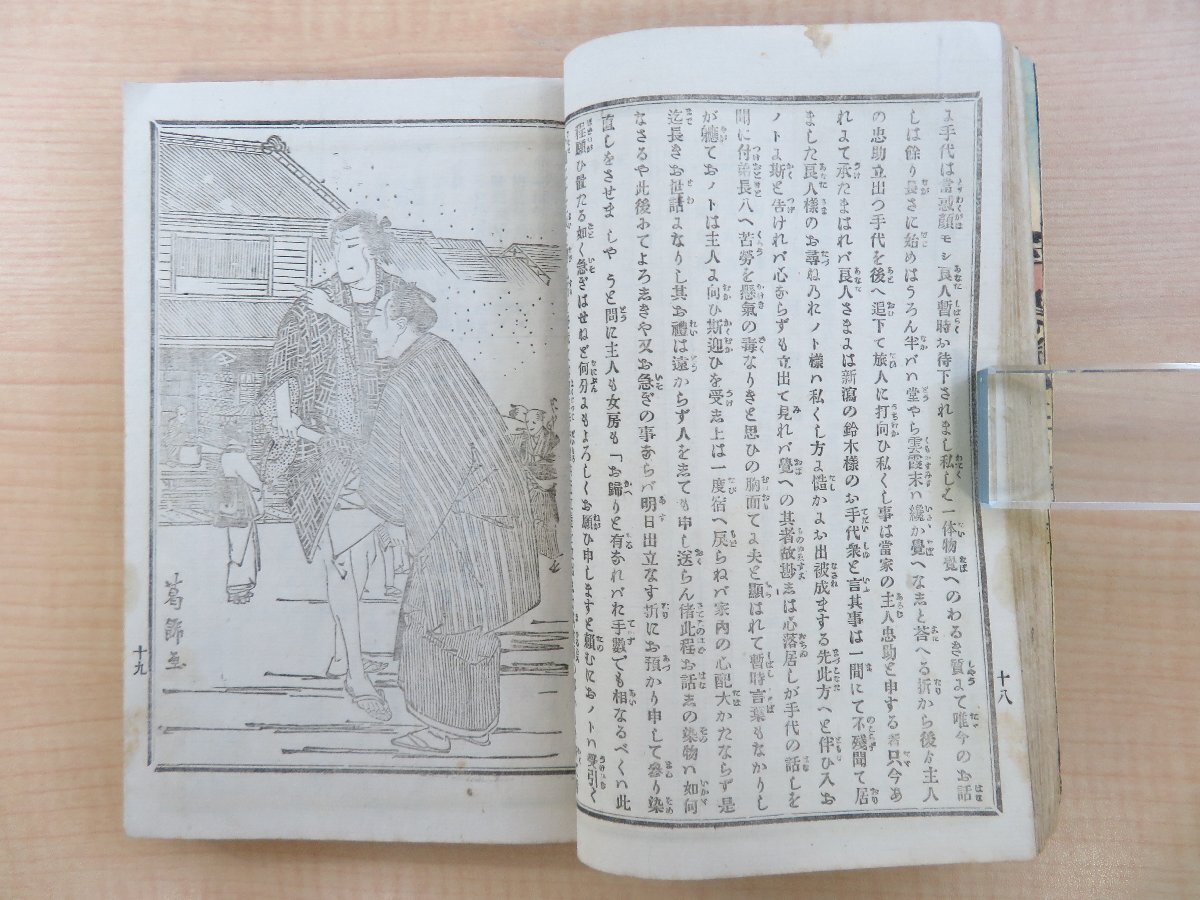 に手代は當惑顔モシ良人暫時お待下されまし私しハ一体物覺へのわるき質にて唯今のお話
しは餘り長さに始めはうろん半バハ堂やら雲霞末ハ纔か覺へなしと荅へる折から後より主人
の忠助立出つ手代を後へ追下て旅人に打向ひ私くし事は當家の主人忠助と申する者只今あ
れにて承たまはれバ良人さまは新瀉の鈴木様のお手代衆と言其事は一間にて不殘聞て居
ました良人様のお尋ね乃れノト様ハ私くし方に慥かにお出被成まする先此方へと伴ひ入お
ノトに斯と告けれバ心ならずも立出て見れバ覺への其者故勘ゑは心落居しが手代の話しを
聞に付弟長八へ苦勞を懸氣の毒なりきと思ひの胸面てに夫と顯はれて暫時言葉もなかりし
が軈ておノトは主人に向ひ斯迎ひを受ゑ上は一度宿へ戾らねバ家内の心配大かたならず是
迄長きお世話になりし其お禮は遠からず人をゑても申し送らん偖此程お話ゑの染物ハ如何
なさるや此後みてよろゑきや又お急ぎの事ならバ明日出立なす折にお預かり申して參り染
直しをさせま しや うと問に主人も女房も「お歸りと有なれバれ手數でも相なるべくハ此
程願ひ置たる如く急ぎはせねど何分にもよろしくお願ひ申しますと頼むにおノトハ受引く
十八
葛飾画
十九